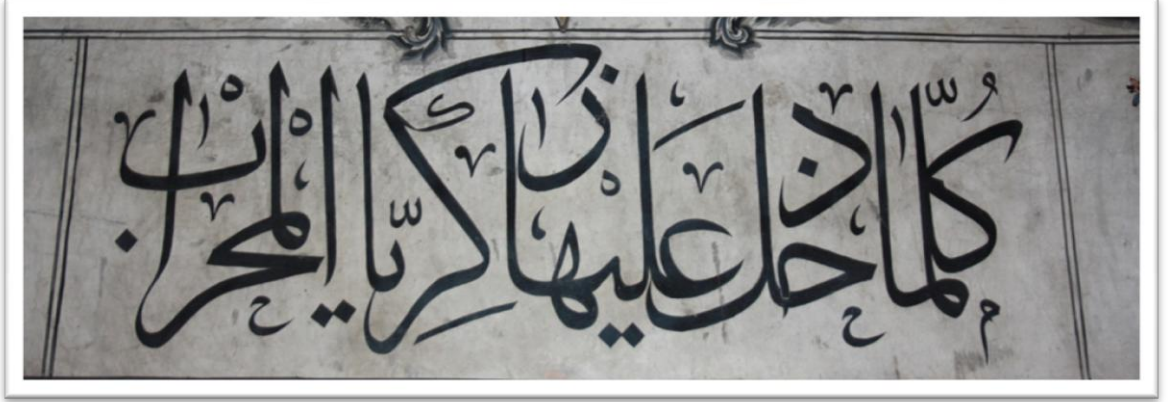 كُلَّما دخل عليها زكريّا المحراب